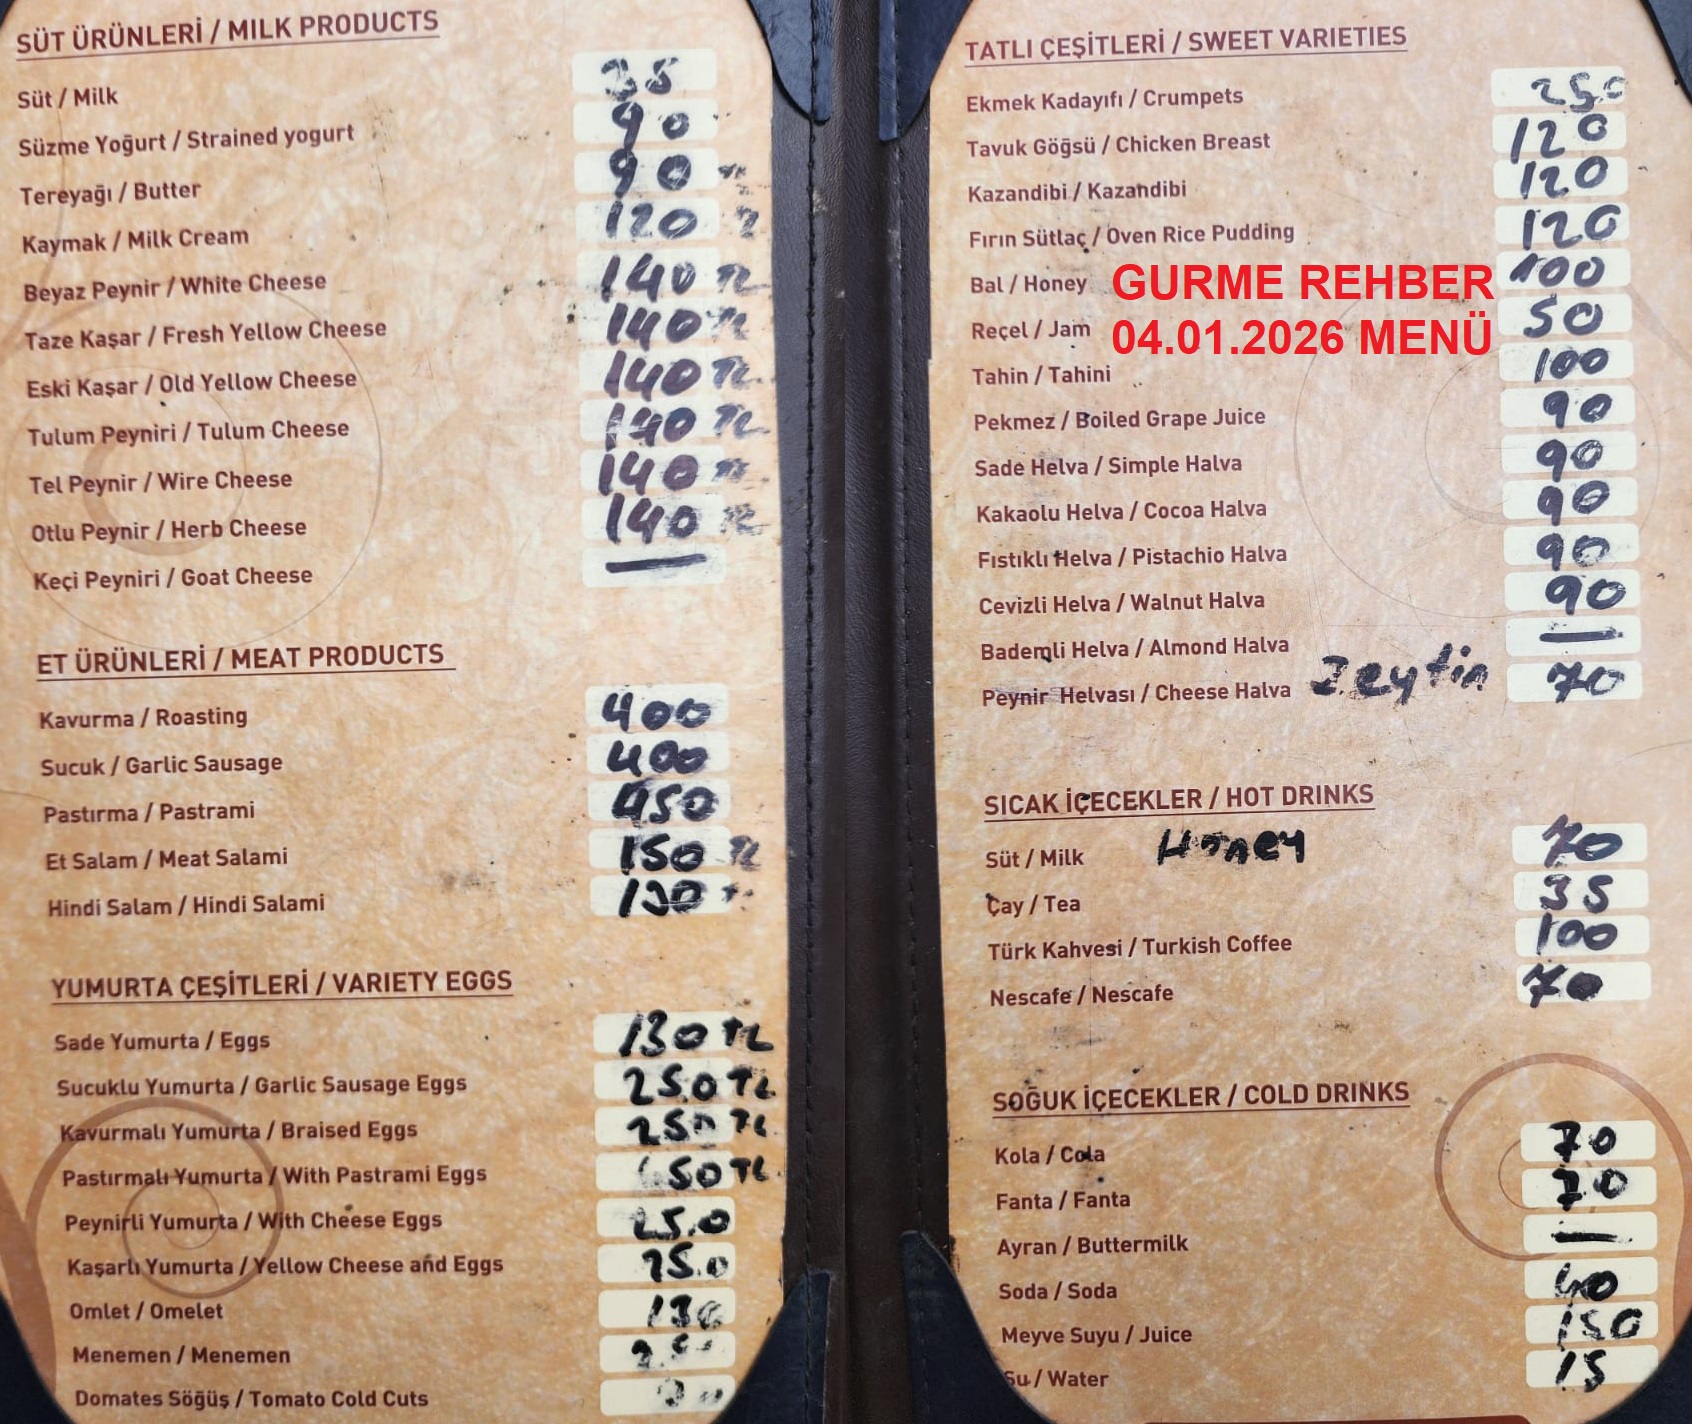 SÜT ÜRÜNLERİ / MILK PRODUCTS
Süt / Milk 35
Süzme Yoğurt / Strained yogurt 90
Tereyağı / Butter 90 TL
Kaymak / Milk Cream 120 TL
Beyaz Peynir / White Cheese 140 TL
Taze Kaşar / Fresh Yellow Cheese 140 TL
Eski Kaşar / Old Yellow Cheese 140 TL
Tulum Peyniri / Tulum Cheese 140 TL
Tel Peynir / Wire Cheese 140 TL
Otlu Peynir / Herb Cheese 140 TL
Keçi Peyniri / Goat Cheese —
ET ÜRÜNLERİ / MEAT PRODUCTS
Kavurma / Roasting 400
Sucuk / Garlic Sausage 400
Pastırma / Pastrami 450
Et Salam / Meat Salami 150 TL
Hindi Salam / Hindi Salami 130
YUMURTA ÇEŞİTLERİ / VARIETY EGGS
Sade Yumurta / Eggs 130 TL
Sucuklu Yumurta / Garlic Sausage Eggs 250 TL
Kavurmalı Yumurta / Braised Eggs 250 TL
Pastırmalı Yumurta / With Pastrami Eggs
Peynirli Yumurta / With Cheese Eggs 250
Kaşarlı Yumurta / Yellow Cheese and Eggs 250
Omlet / Omelet 130
Menemen / Menemen
Domates Söğüş / Tomato Cold Cuts
TATLI ÇEŞİTLERİ / SWEET VARIETIES
Ekmek Kadayıfı / Crumpets 250
Tavuk Göğsü / Chicken Breast 120
Kazandibi / Kazandibi 120
Fırın Sütlaç / Oven Rice Pudding 120
Bal / Honey 100
Reçel / Jam 50
GURME REHBER
04.01.2026 MENÜ
Tahin / Tahini 100
Pekmez / Boiled Grape Juice 90
Sade Helva / Simple Halva 90
Kakaolu Helva / Cocoa Halva 90
Fıstıklı Helva / Pistachio Halva 90
Cevizli Helva / Walnut Halva 90
Bademli Helva / Almond Halva —
Peynir Helvası / Cheese Halva Zeytin 70
SICAK İÇECEKLER / HOT DRINKS
Süt / Milk Honey 70
Çay / Tea 35
Türk Kahvesi / Turkish Coffee 100
Nescafe / Nescafe 70
SOĞUK İÇECEKLER / COLD DRINKS
Kola / Cola 70
Fanta / Fanta 70
Ayran / Buttermilk —
Soda / Soda 40
Meyve Suyu / Juice 150
Su / Water 15